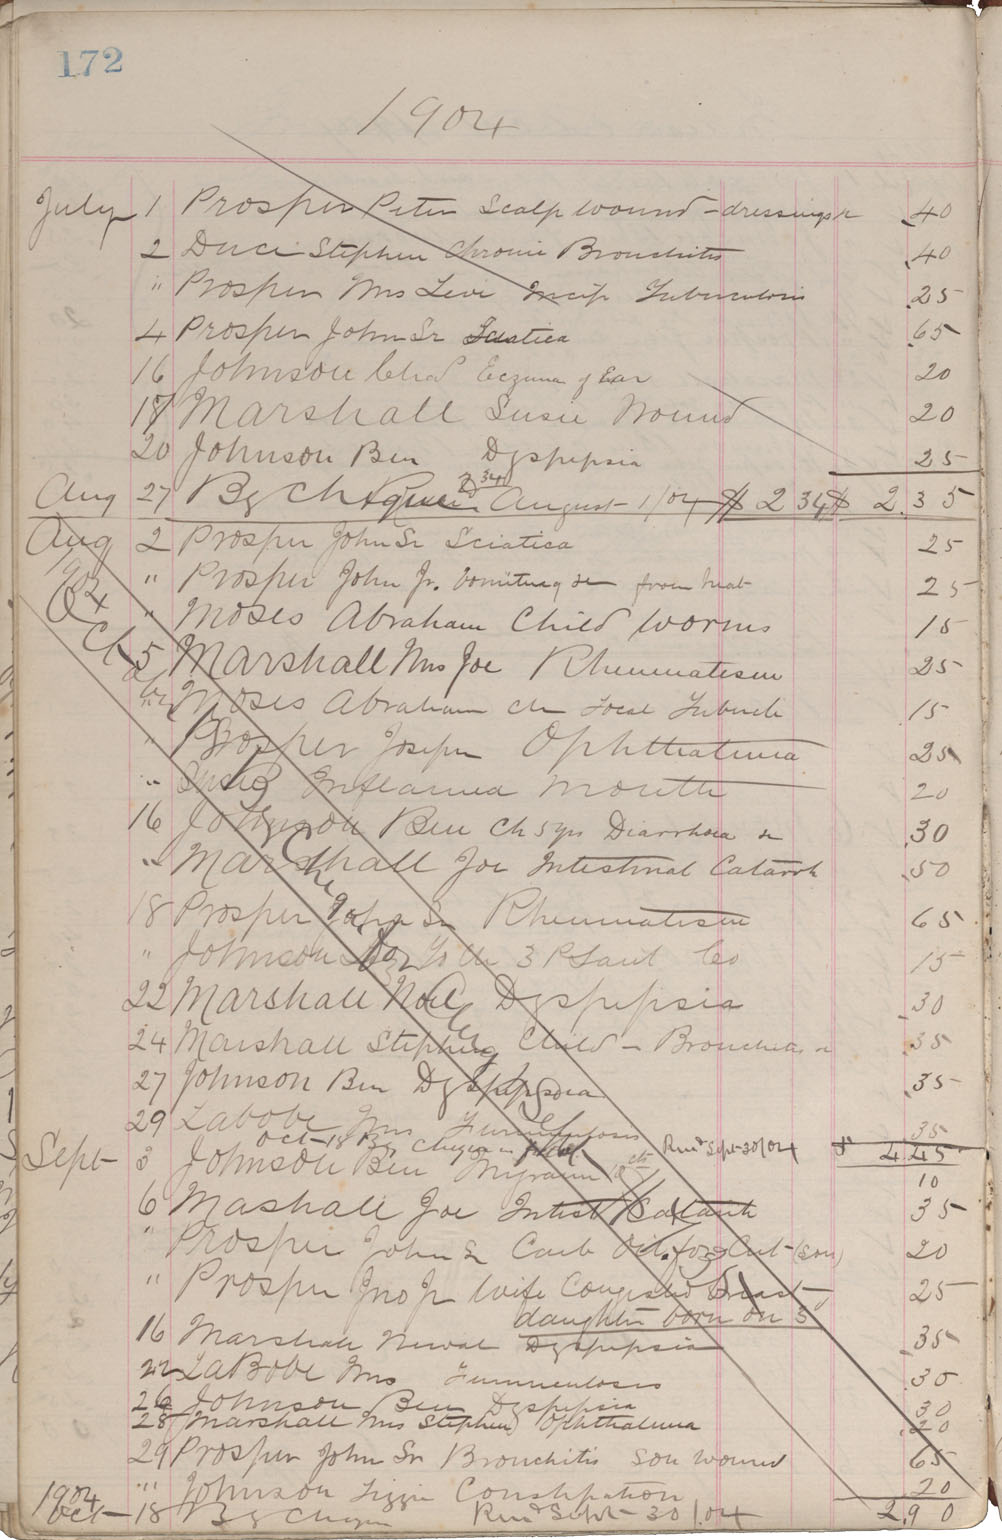 172
1904
July 1 Prosper Peter Scalp wound - dressings &c .40
2 Duci Stephen Chronic Bronchitis .40
" Prosper Mrs Levi Incip Tuberculosis .25
4 Prosper John Sr .65
16 Johnson Chas Eczema of Ear 20
17 Marshall Susie Wound 20
20 Johnson Ben Dyspepsia 25
Aug 27 By Cheque 2.34 August 1/04 $ 2 34 $ 2.35
Aug 2 Prosper John Sr Sciatica 25
" Prosper John Jr. Vomiting &c from heat 25
" Moses Abraham Child worms 15
5 Marshall Mrs Joe Rheumatism 25
" Moses Abraham ch Local Tubercle 15
" Prosper Joseph Ophthalmia 25
" Inflamed mouth 20
16 Johnson Ben Ch 5 yrs Diarrhoea &c .30
" Marshall Joe Intestinal Catarrh .50
18 Prosper John Sr Rheumatism 65
" Johnson 15
22 Marshall Noel Dyspepsia .30
24 Marshall Stephen Child - Bronchitis &c .35
27 Johnson Ben Dyspepsia .35
29 Labobe Mrs 35
Oct 18 By Cheque Rec'd Sept 30/04 $ 4.45
Sept 3 Johnson Ben 10
6 Mashall Joe Intest Catarrh 35
" Prosper John Sr Carb Oil for Cut (son) 20
" Prosper Jno Jr Wife Congested Breast 25
daughter born on 5
16 Marshall Newal Dyspepsia .35
22 LaBobe Mrs .30
26 Johnson Ben Dyspepsia 30
28 Marshall Mrs Stephen Ophthalmia .20
29 Prosper John Sr Bronchitis son wound 65
" Johnson Lizzie Constipation 20
1904 Oct 18 By Cheque Rec'd Sept 30/04 2.90